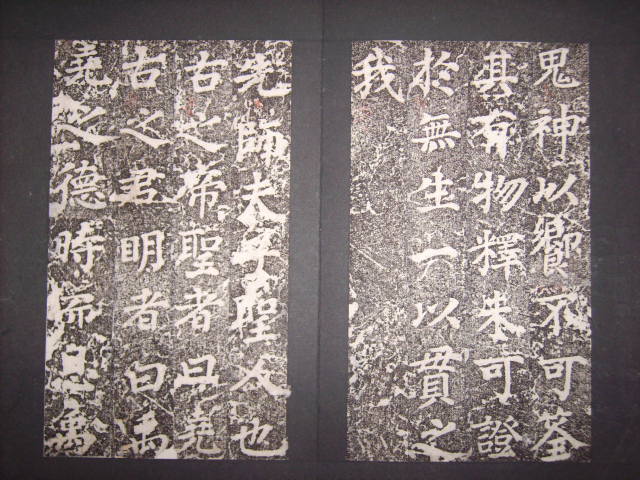 鬼神以饗不可筌
其有物釋未可證
於無生一以貫之
我
先師夫子聖人也
古之帝聖者曰堯
古之君明者曰禹
堯之德時而息禹